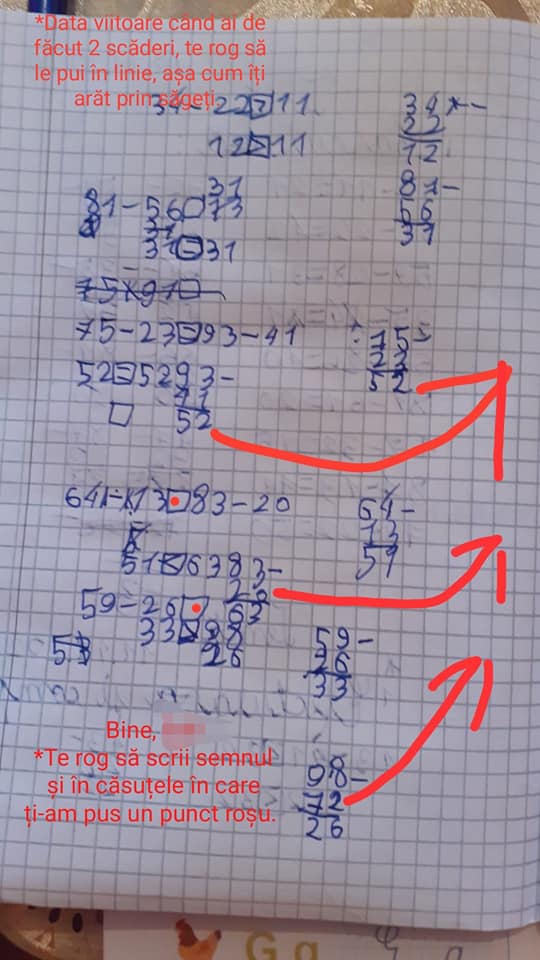 *Data viitoare când ai de
făcut 2 scăderi, te rog să
le pui în linie, așa cum îți
arăt prin săgeți.
34-22>11
12>11
34-
22
12
81-
56
31
31
81-56 73
31=31
75-23=93-41
75
23
52
52=52 93-
41
52
64-13 83-20
64-
13
51
51<63 83-
20
63
59-26
33 98
26
59-
26
33
Bine,
*Te rog să scrii semnul
și în căsuțele în care
ți-am pus un punct roșu.
98-
72
26
G g